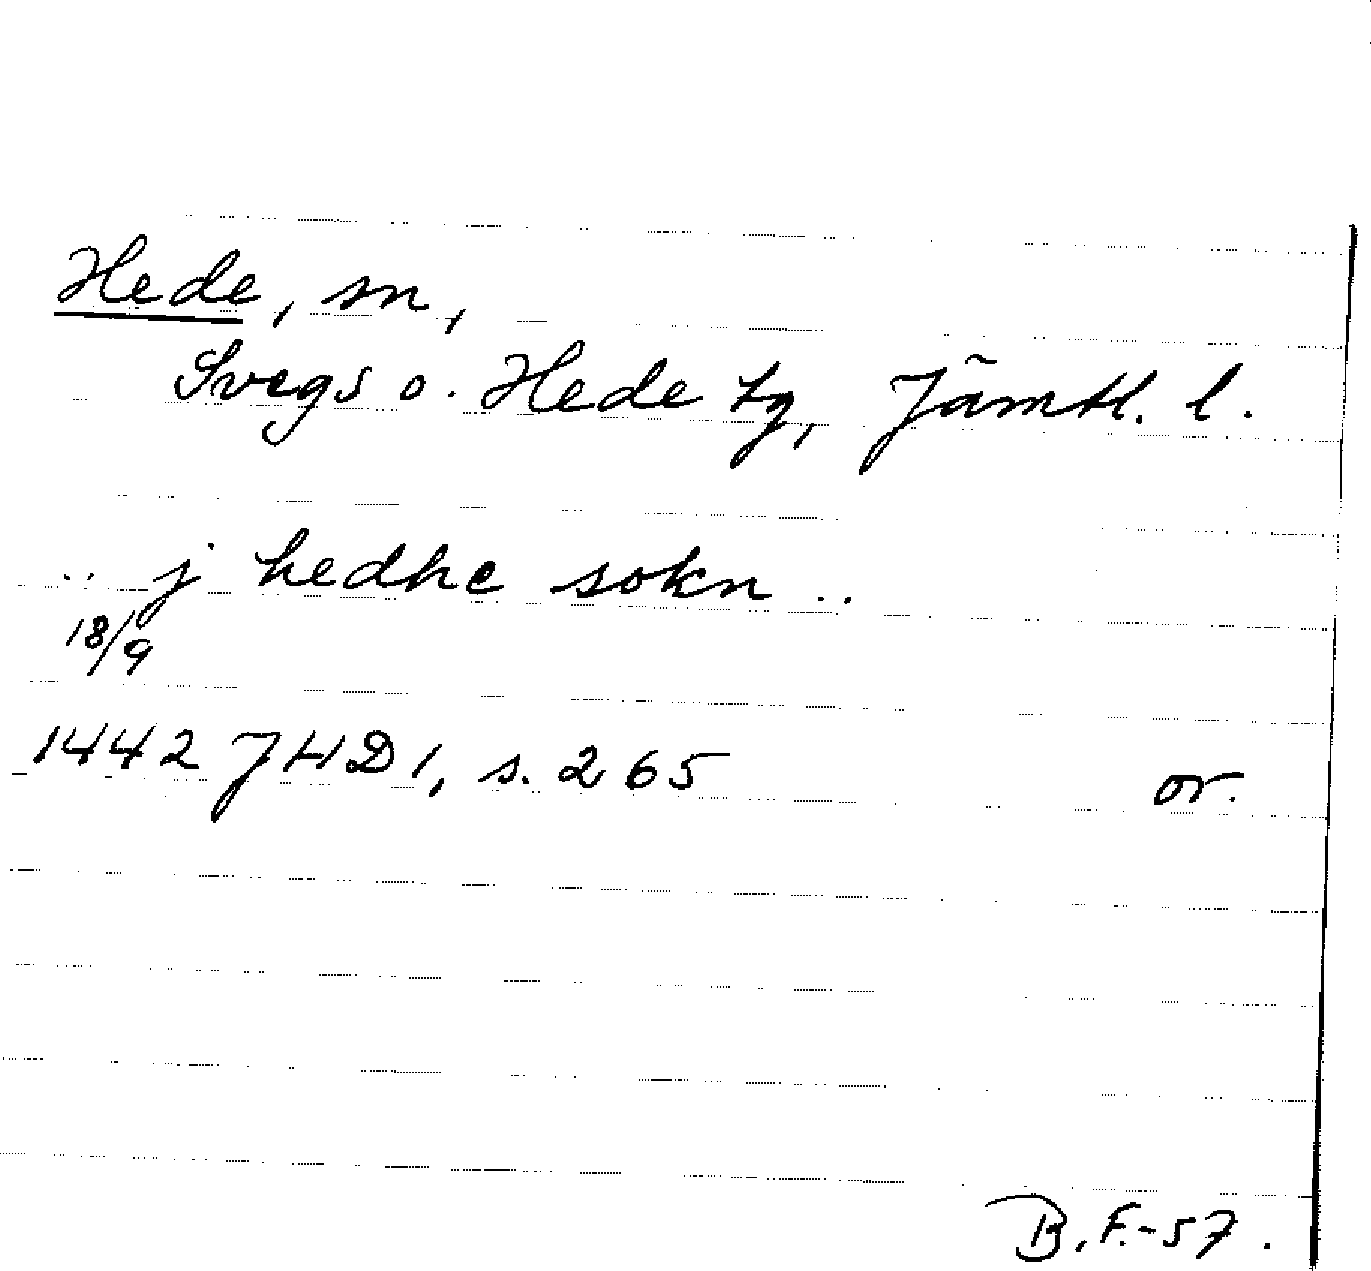 Hede, sn,
Svegs o. Hede tg, Jämtl. l.
.. j hedhe sokn ..
18/9
1442 JHD 1, s. 265 or.
B. F. - 57.